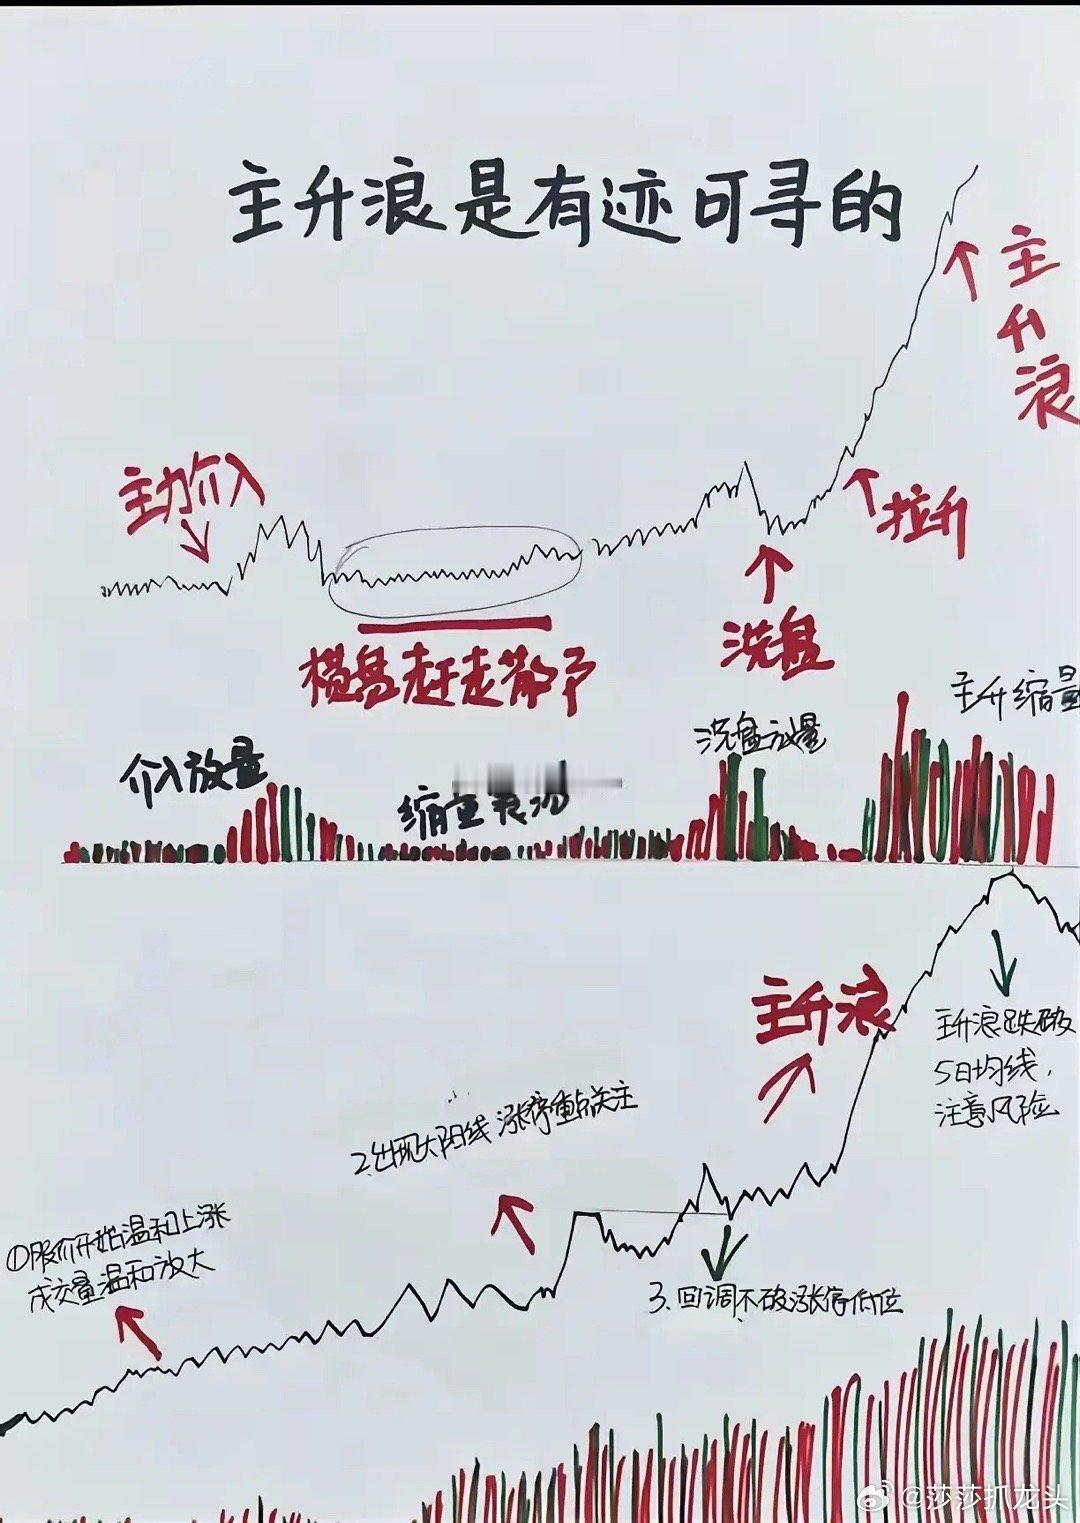 主升浪是有迹可寻的
主升浪
主力介入
拉升
洗盘
横盘赶走散户
主升缩量
洗盘放量
介入放量
缩量
主升浪
主升浪跌破
5日均线,
注意风险
2.出现大阳线 涨停重点关注
①股价开始温和上涨
成交量温和放大
3.回调不破涨停低位
@莎莎抓龙头